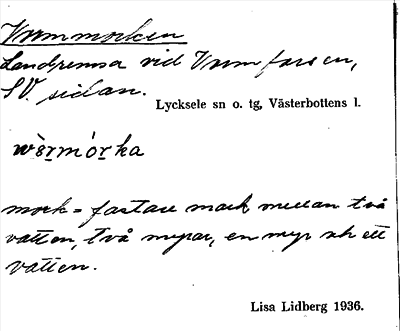 Vormmorken
Landremsa vid Vormforsen,
SV. sidan.
Lycksele sn o. tg, Västerbottens l.
mork = fastare mark mellan två
vatten, två myrar, en myr och ett
vatten.
Lisa Lidberg 1936.